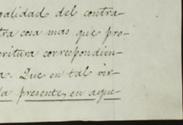 alidad del contra
tra cosa mas que pro
critura correspondien
a. Que en tal vir
la presente, en aque